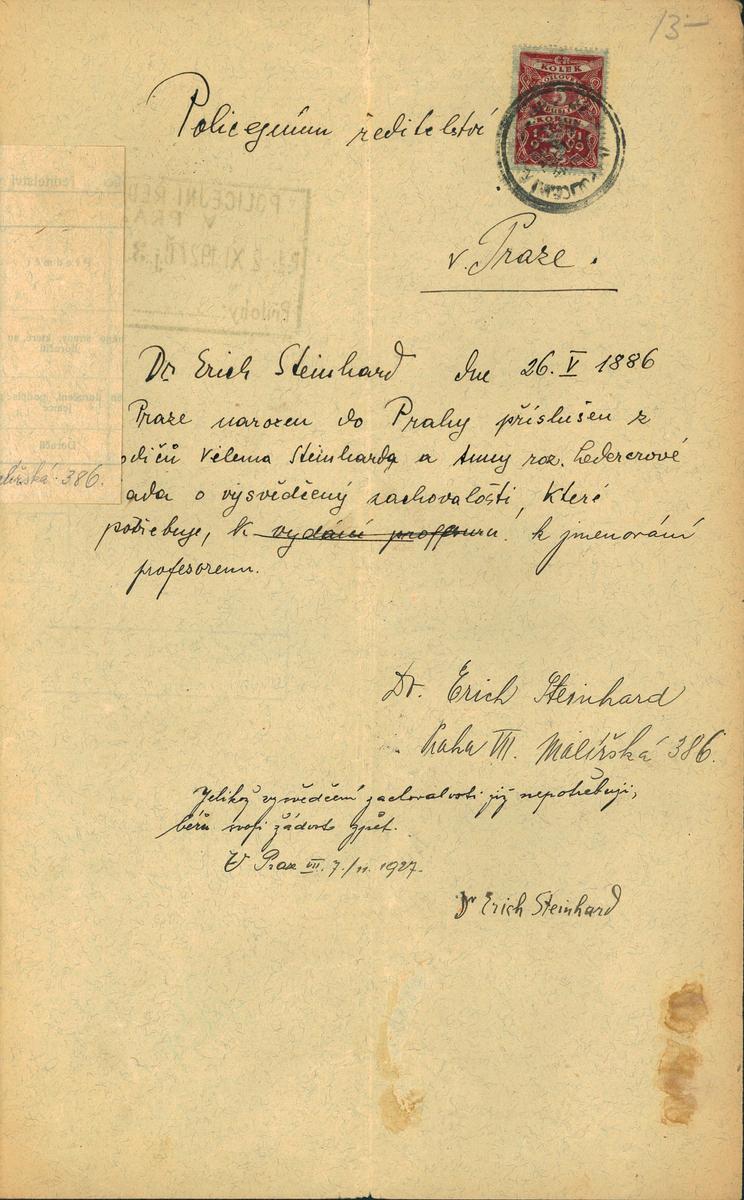 13-
ČR
KOLEK
KORUN
Policejnímu ředitelství
v Praze.
POLICEJNÍ ŘED
V PRA
XI.1927
Přílohy:
Předmět
Doručil
Malířská 386.
Dr. Erich Steinhard dne 26. V 1886
Praze narozen do Prahy příslušen z
odičů Viléma Steinharda a Anny roz. Ledererové
ada o vysvědčený zachovalósti, které
potřebuje, k vydání k jmenování
profesorem.
Dr. Erich Steinhard
Praha VII. Malířská 386.
Jelikož vysvědčení zachovalosti již nepotřebuji,
béru svoji žádost zpět.
V Praze VII. 7./11. 1927.
Dr Erich Steinhard